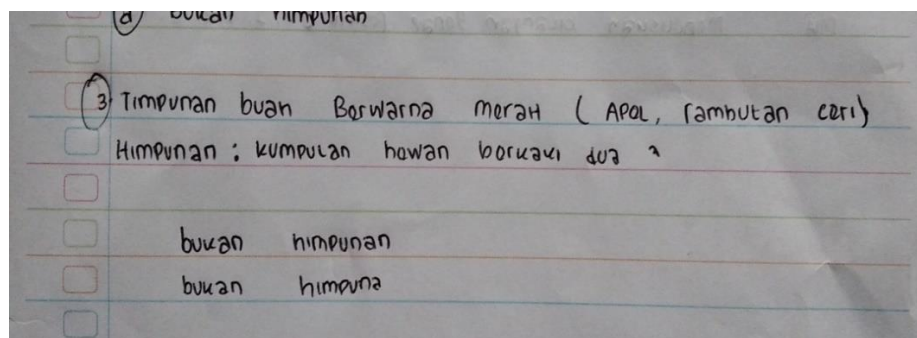 (d) bukan himpunan
3) Timpunan buah Berwarna merah ( APel, rambutan ceri)
Himpunan : kumpulan hewan berkaki dua
bukan himpunan
bukan himpuna